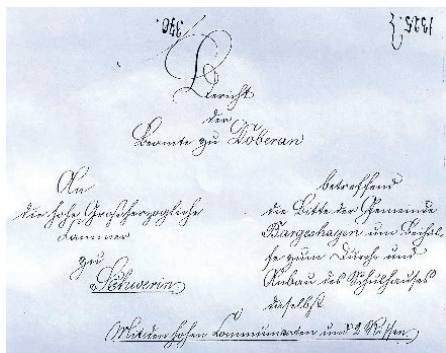 396.
1325.
Bericht
der
Beamte zu Doberan
An
die hohe Großherzogliche
Kammer
zu
Schwerin
betreffend
die Bitte der Gemeinde
Bargeshagen um Beihül-
fe zum Durch- und
Anbau des Schulhauses
daselbst
Mit den hohen Communicaten und 2 Rissen